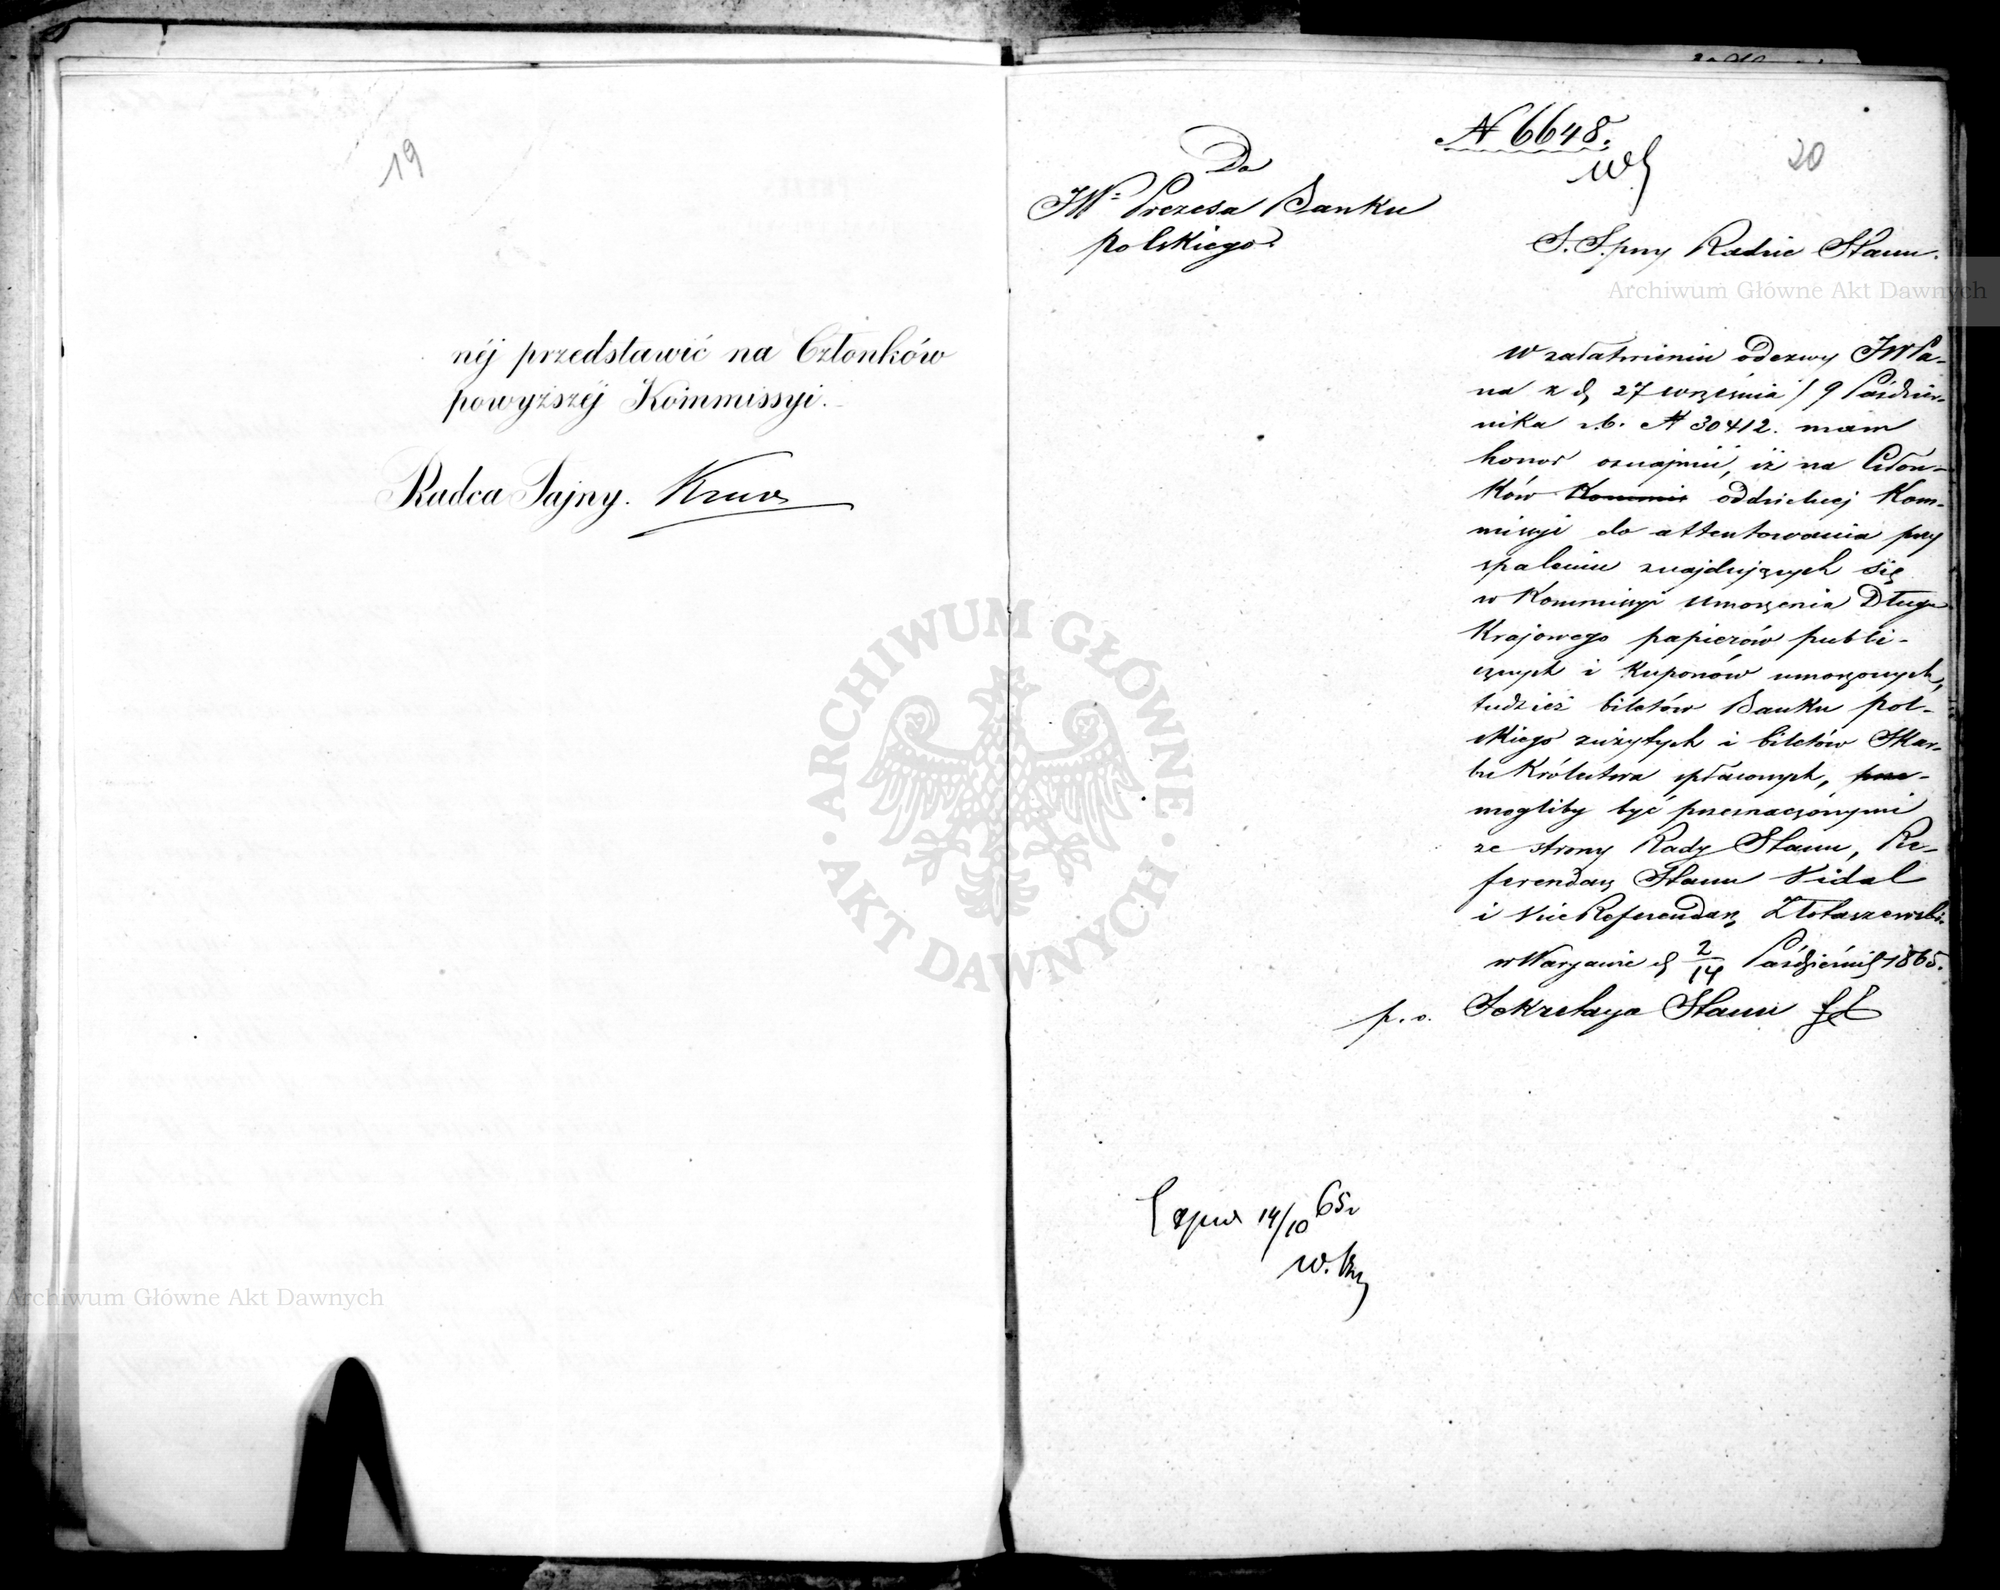 19
néj przedstawić na Członków
powyższéj Kommissyi.
Radca Tajny.
№ 6648.
20
Do
JW= Prezesa Banku
polskiego.
S. S. przy Radzie Stanu.
W załatwieniu odezwy JWPa-
na z d. 27 września / 9 Paździer-
nika r.b. № 30412. mam
honor oznajmić, iż na Człon-
ków Kommis oddzielnej Kom-
missyi do attentowania przy
spaleniu znajdujących się
w Kommissyi Umorzenia Długu
Krajowego papierów publi-
cznych i kuponów umorzonych,
tudzież biletów Banku Pol-
skiego zużytych i biletów Skar-
bu Królestwa spłaconych, prze-
mogliby być przeznaczonymi
ze strony Rady Stanu, Re-
ferendarz Stanu Vidal
i ViceReferendarz Złotaszewski.
w Warszawie d. 2/14 Październik 1865.
p. o. Sekretarza Stanu
14/10 65r
Archiwum Główne Akt Dawnych
ARCHIWUM GŁÓWNE · AKT DAWNYCH ·
Archiwum Główne Akt Dawnych